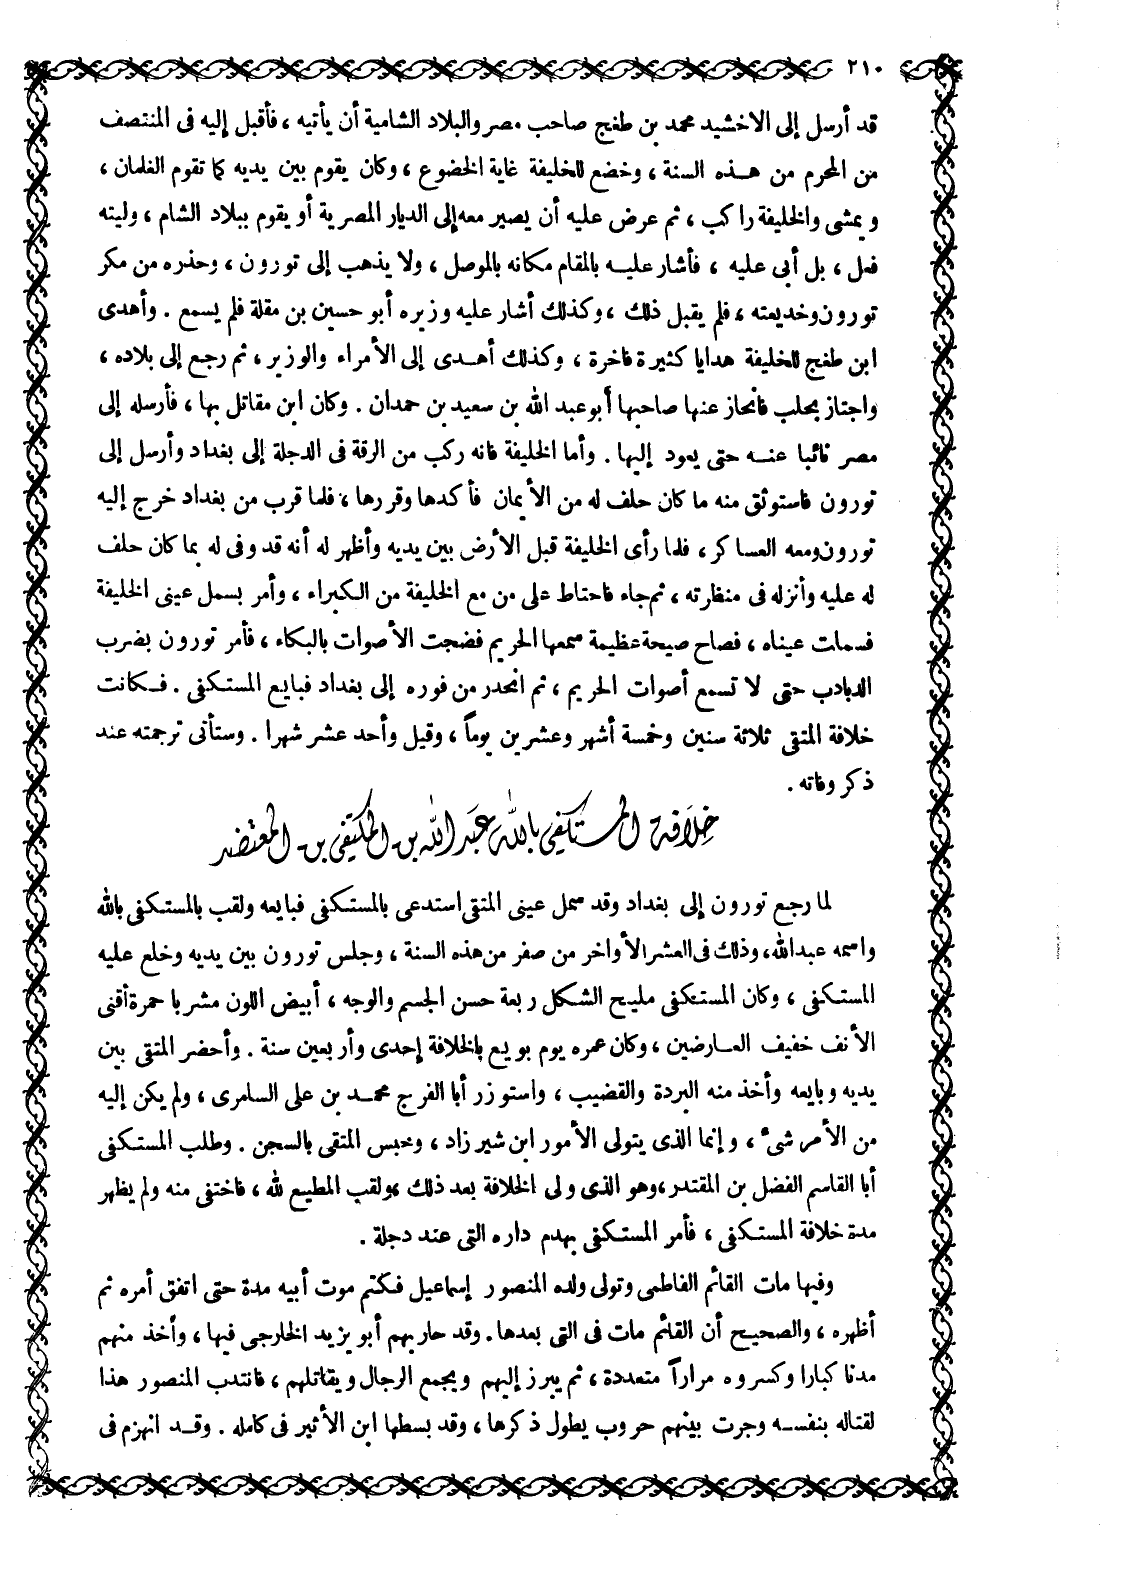 ٢١٠
قد أرسل إلى الاخشيد محمد بن طغج صاحب مصر والبلاد الشامية أن يأتيه ، فأقبل إليه فى المنتصف
من المحرم من هذه السنة ، وخضع للخليفة غاية الخضوع ، وكان يقوم بين يديه كما تقوم الغلمان ،
ويمشى والخليفة راكب ، ثم عرض عليه أن يصير معه إلى الديار المصرية أو يقوم ببلاد الشام ، وليته
فعل ، بل أبى عليه ، فأشار عليه بالمقام مكانه بالموصل ، ولا يذهب إلى تورون ، وحذره من مكر
تورون وخديعته ، فلم يقبل ذلك ، وكذلك أشار عليه وزيره أبو حسين بن مقلة فلم يسمع . وأهدى
ابن طغج للخليفة هدايا كثيرة فاخرة ، وكذلك أهدى إلى الأمراء والوزير ، ثم رجع إلى بلاده ،
واجتاز بحلب فانحاز عنها صاحبها أبو عبد الله بن سعيد بن حمدان . وكان ابن مقاتل بها ، فأرسله إلى
مصر نائبا عنه حتى يعود إليها . وأما الخليفة فانه ركب من الرقة فى الدجلة إلى بغداد وأرسل إلى
تورون فاستوثق منه ما كان حلف له من الأيمان فأكدها وقررها ، فلما قرب من بغداد خرج إليه
تورون ومعه العساكر ، فلما رأى الخليفة قبل الأرض بين يديه وأظهر له أنه قد وفى له بما كان حلف
له عليه وأنزله فى منظارته ، ثم جاء فاحتاط على من مع الخليفة من الكبراء ، وأمر بسمل عينى الخليفة
فسملت عيناه ، فصاح صيحة عظيمة سمعها الحريم فضجت الأصوات بالبكاء ، فأمر تورون بضرب
الدبادب حتى لا تسمع أصوات الحريم ، ثم انحدر من فوره إلى بغداد فبايع المستكفى . فكانت
خلافة المتقى ثلاثة سنين وخمسة أشهر وعشرين يوماً ، وقيل وأحد عشر شهرا . وستأتى ترجمته عند
ذكر وفاته .
خلافة المستكفي بالله عبد الله بن المكتفي بن المعتضد
لما رجع تورون إلى بغداد وقد سمل عينى المتقى استدعى بالمستكفى فبايعه ولقب بالمستكفى بالله
واسمه عبدالله، وذلك فى العشر الأواخر من صفر من هذه السنة ، وجلس تورون بين يديه وخلع عليه
المستكفى ، وكان المستكفى مليح الشكل ربعة حسن الجسم والوجه ، أبيض اللون مشربا حمرة أقنى
الأنف خفيف العارضين ، وكان عمره يوم بويع بالخلافة إحدى وأربعين سنة . وأحضر المتقى بين
يديه وبايعه وأخذ منه البردة والقضيب ، واستوزر أبا الفرج محمد بن على السامرى ، ولم يكن إليه
من الأمر شىء ، وإنما الذى يتولى الأمور ابن شيرزاد ، وحبس المتقى بالسجن . وطلب المستكفى
أبا القاسم الفضل بن المقتدر ،وهو الذى ولى الخلافة بعد ذلك ،ولقب المطيع لله ، فاختفى منه ولم يظهر
مدة خلافة المستكفى ، فأمر المستكفى بهدم داره التى عند دجلة .
وفيها مات القائم الفاطمى وتولى ولده المنصور إسماعيل فكتم موت أبيه مدة حتى اتفق أمره ثم
أظهره ، والصحيح أن القائم مات فى التى بعدها. وقد حاربهم أبو يزيد الخارجى فيها ، وأخذ منهم
مدنا كبارا وكسروه مراراً متعددة ، ثم يبرز إليهم ويجمع الرجال ويقاتلهم ، فانتدب المنصور هذا
لقتاله بنفسه وجرت بينهم حروب يطول ذكرها ، وقد بسطها ابن الأثير فى كامله . وقد انهزم فى